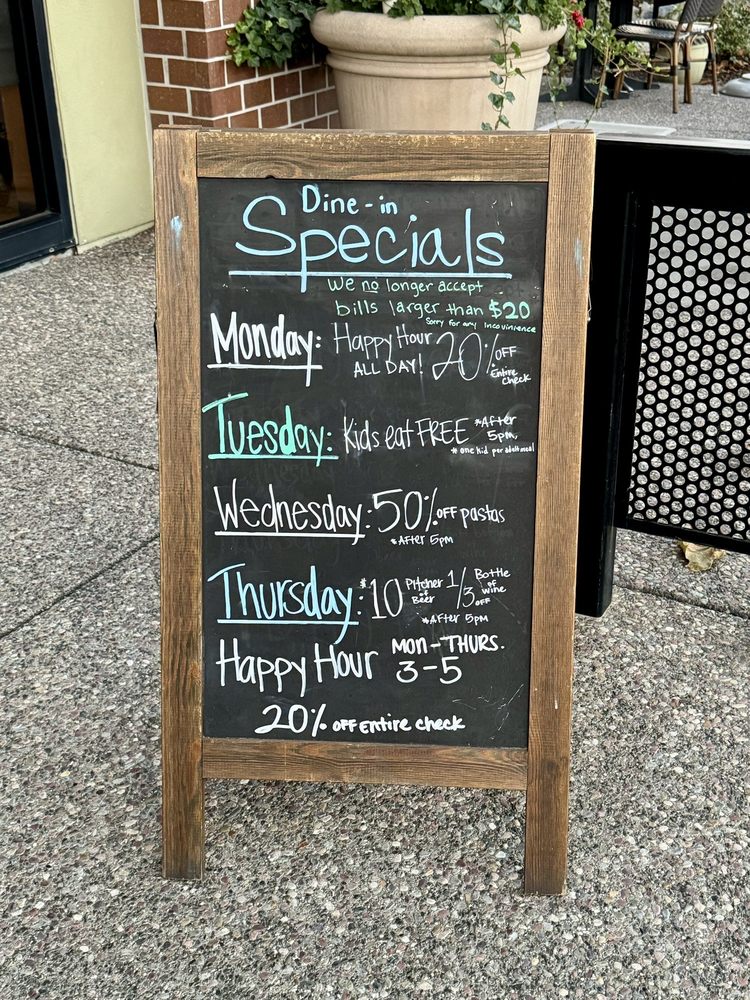 Dine-in
Specials
We no longer accept
bills larger than $20
Sorry for any Incovinience
Monday: Happy Hour 20% OFF
ALL DAY! Entire
Check
Tuesday: Kids eat FREE *After
5pm,
* one kid per adult meal
Wednesday: 50% OFF pastas
*After 5pm
Thursday: $10 Pitcher of Beer 1/3 OFF Bottle of wine
*After 5pm
Happy Hour MON-THURS.
3-5
20% OFF Entire check